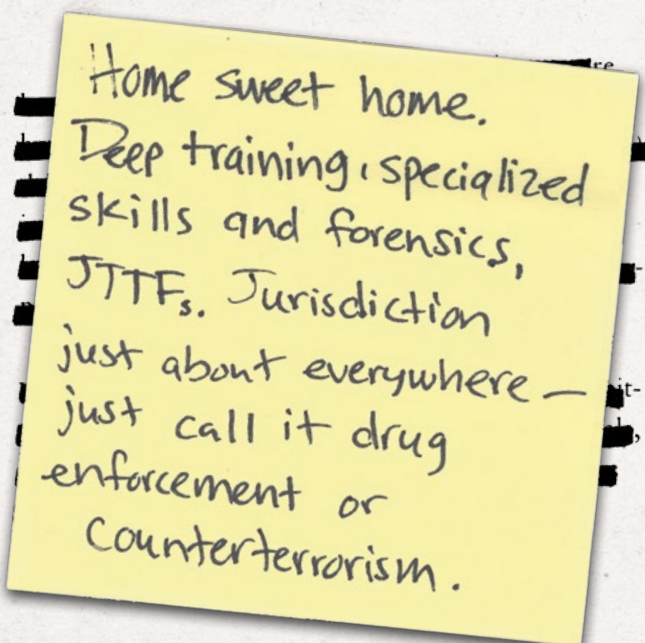 re
Home sweet home.
Deep training, specialized
skills and forensics,
JTTFs. Jurisdiction
just about everywhere —
just call it drug
enforcement or
counterterrorism.
it-